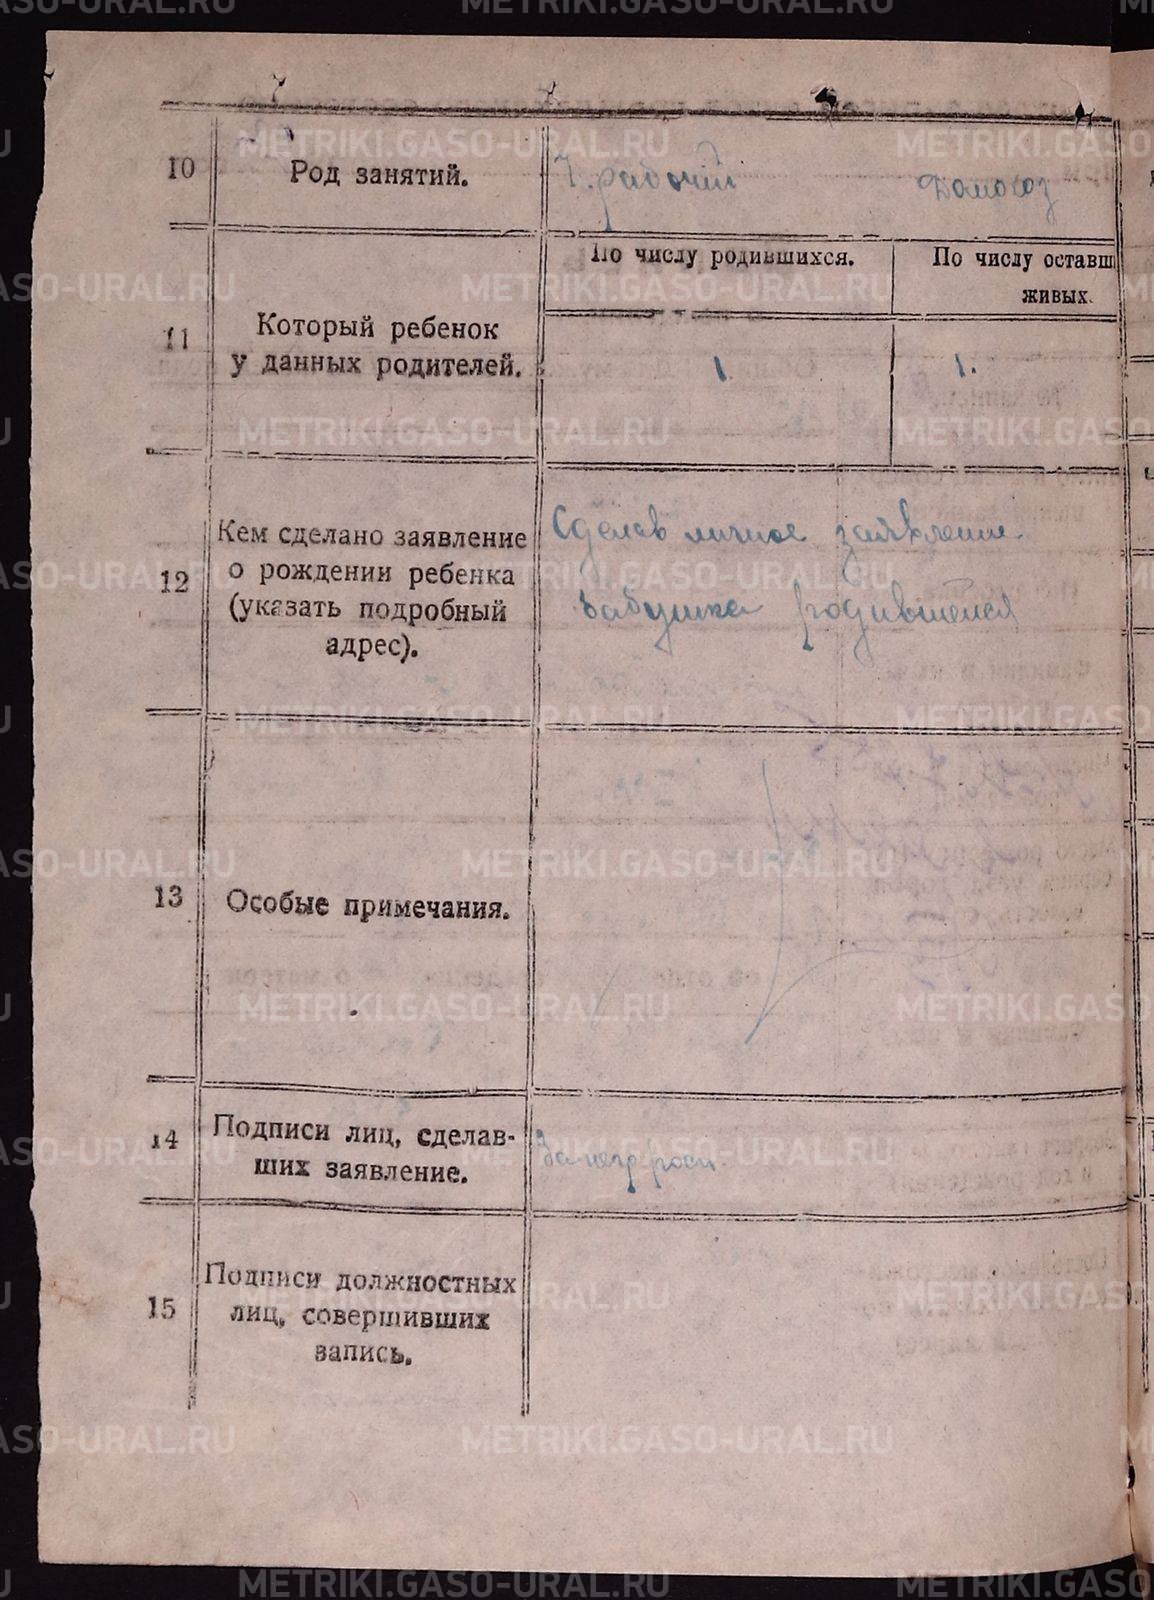 10
Род занятий.
Ч. рабочий
Домохоз
11
Который ребенок
у данных родителей.
По числу родившихся.
1
По числу оставш
живых.
1.
12
Кем сделано заявление
о рождении ребенка
(указать подробный
адрес).
Сделав личное заявление
бабушка родившейся
13
Особые примечания.
14
Подписи лиц, сделав-
ших заявление.
15
Подписи должностных
лиц, совершивших
запись.
METRIKI.GASO-URAL.RU